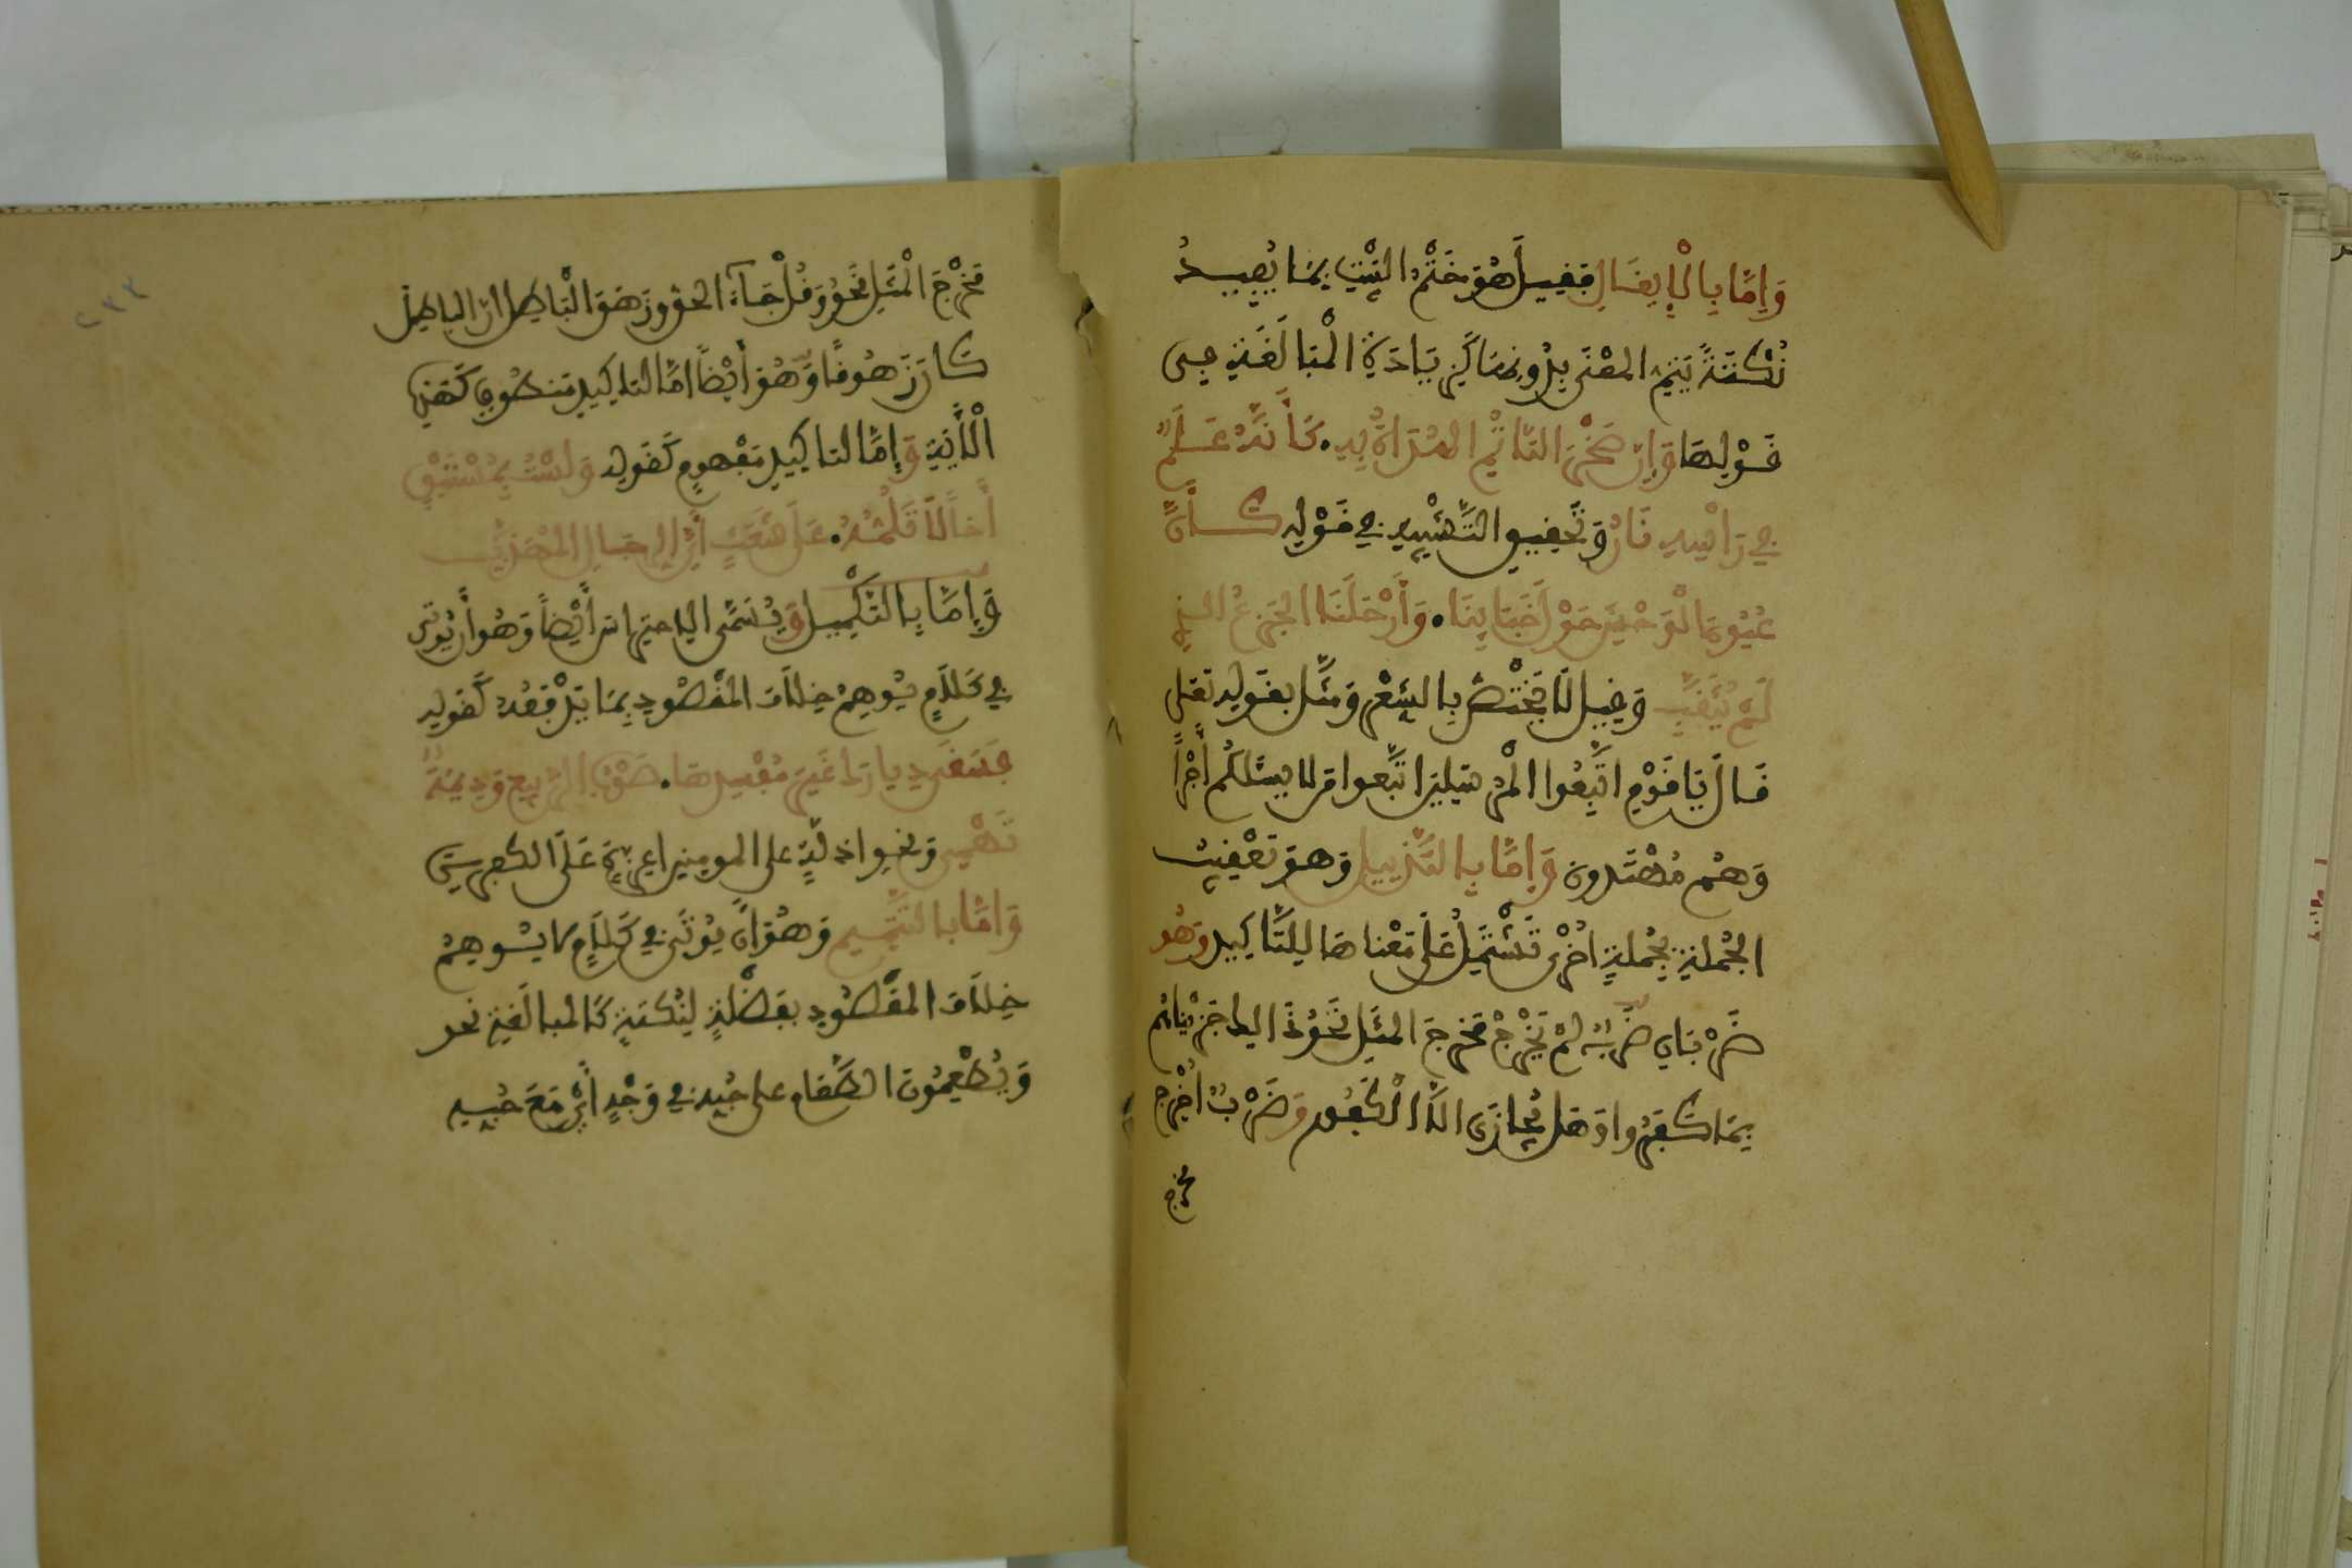 وَإِمَّا بِالْإِيغَالِ فَفِيلَ هُوَ خَتْمُ البَيْتِ بِمَا يُفِيدُ
نُكْتَةً يَتِمُّ المَعْنَى بِدُونِهَا كَزِيَادَةِ الْمُبَالَغَةِ فِى
قَوْلِهَا وَإِنَّ صَخْرًا لَتَاتَمُّ الهُدَاةُ بِهِ • كَأَنَّهُ عَلَمٌ
فِي رَاسِهِ نَارُ وَتَحْقِيقِ التَّشْبِيهِ فِي قَوْلِهِ كَأَنَّ
عُيُونَ الْوَحْشِ حَوْلَ خِبَائِنَا • وَأَرْحُلِنَا الجَزْعُ الذِي
لَمْ يُثَقَّبِ وَقِيلَ لَا يَخْتَصُّ بِالشِّعْرِ وَمُثِّلَ بِقَوْلِهِ تَعَلَى
قَالَ يَا قَوْمِ اتَّبِعُوا الْمُرْسَلِينَ اتَّبِعُوا مَن لا يسئلكُم أَجْراً
وَهُم مُهْتَدُونَ وَإِمَّا بِالتَّذْيِيلِ وَهُوَ تَعْقِيبُ
الجُمْلَةِ بِجُمْلَةٍ اُخْرَى تَشْتَمِلُ عَلَى مَعْنَاهَا لِلتَّاكِيدِ وَهُو
ضَرْبَانِ ضَرْبٌ لَمْ يَخْرُجْ مَخْرَجَ المَثَلِ نَحْوُ ذَالِكَ جَزَيْنَاهُم
بِمَا كَفَرُوا وَهَل يُجَازَى الَّا الْكَفُور وَضَرْبٌ اُخْرِجَ
مخرج
مَخْرَجَ الْمَثَلِ نَحْوُ وَقُلْ جَاءَ الحَقُّ وَزَهَقَ الْبَاطِلُ انَّ الباطِلَ
كَانَ زَهُوقًا وَهُوَ أَيْضاً امَّا لتاكِيدِ مَنطُوقٍ كَهَذِهِ
الْأَيَةِ وَإِمَّا لتاكِيدِ مَفْهُومٍ كَقَولِهِ وَلَسْتَ بِمُسْتَبْقٍ
أَخاً لَا تَلُمُّهُ • عَلَى شَعَثٍ أَيُّ الرِجَالِ المُهَذَّبُ
وَإِمَّا بِالتَكْمِيلِ وَيُسَمَّى الِاحتِرَاسَ أَيْضاً وَهُوَ أَن يُوتَى
فِي كَلَامٍ يُوهِمُ خِلَافَ المَقْصُودِ بِمَا يَدْفَعُهُ كَقَولِهِ
فَسَقَى دِيَارَكَ غَيْرَ مُفْسِدِهَا • صَوْبُ الرَّبِيعِ وَدِيمَةٌ
تَهْمِى وَنَحْو اذِلَّةٍ على المومِنِين اعِزَّةٍ عَلَى الكفِرِينَ
وَإِمَّا بِالتَّتْمِيمِ وَهُوَ أَنْ يُوتَى فِي كَلَامٍ لا يُوهِمُ
خِلَافَ المَقْصُودِ بِفَضْلَةٍ لِنُكْتَةٍ كَالمُبالَغَةِ نحو
وَيُطْعِمُونَ الطَّعَام على حُبِّهِ فِي وَجْهٍ أَيْ مَعَ حُبِّهِ